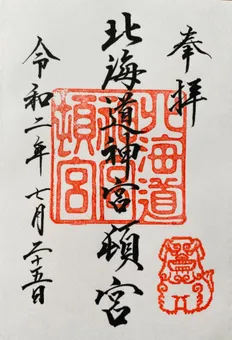 奉拝
北海道神宮頓宮
北海道
神宮
頓宮
令和二年七月二十五日